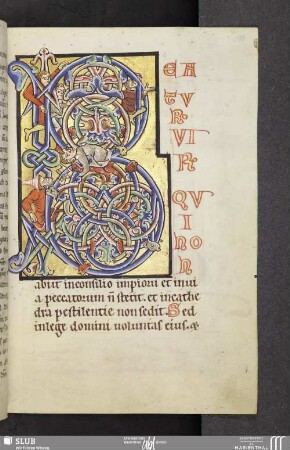 B
EA
TV
R·
VI
R·
QV
I N
ON
abiit inconsilio impioru et inui
a peccatorum n stetit. et incathe
dra pestilentie non sedit. Sed
inlege domini voluntas eius. &
SLUB
Wir führen Wissen.
MARIENTHAL